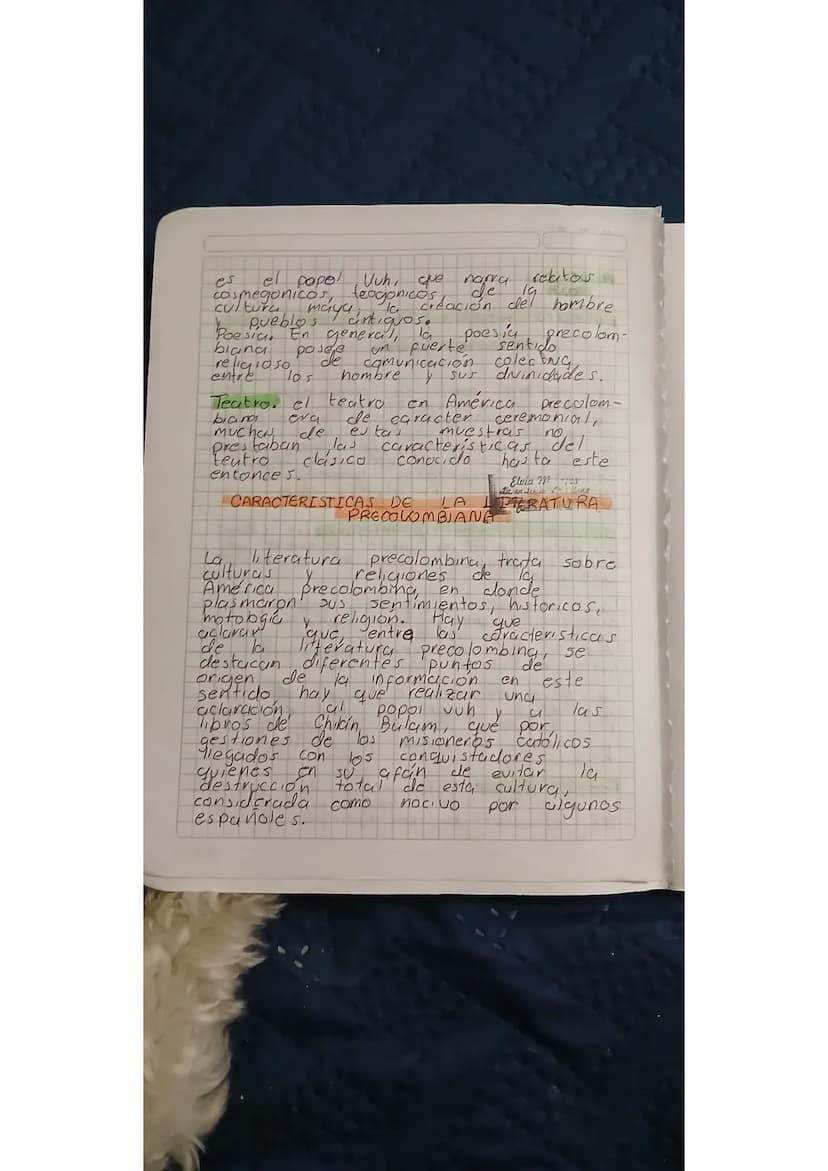 es el popol Vuh, que narra relatos
cosmegonicos, teogonicos, de la
cultura maya, la creación del hombre
y pueblos antiguos.
Poesía. En general, la poesía precolom-
biana posee un fuerte sentido
religioso de comunicación colectiva
entre los hombre y sus divinidades.
Teatro. el teatro en América precolom-
biana era de caracter ceremonial,
muchas de estas muestras no
prestaban las características del
teatro clásico conocido hasta este
entonces.
Elvia M
CARACTERISTICAS DE LA LITERATURA
PRECOLOMBIANA
La literatura precolombina, trata sobre
culturas y religiones de la
América precolombina, en donde
plasmaron sus sentimientos, historicos,
motología y religión. Hay que
aclarar que, entre las características
de la literatura precolombina, se
destacan diferentes puntos de
origen de la información en este
sentido hay que realizar una
aclaración, al popol vuh y a las
libros de Chibin Bulam, que por
gestiones de los misioneros católicos
llegados con los conquistadores
quienes en su afán de evitar la
destrucción total de esta cultura,
considerada como nocivo por algunos
españoles.